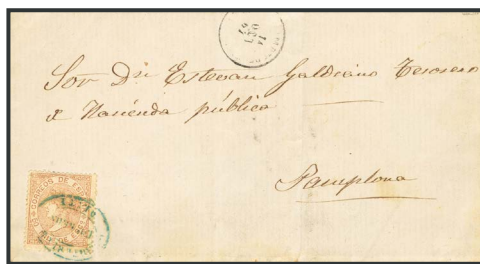 Sor Dn Estevan Galdiano Tesorero
de Hacienda pública
Pamplona
CORREOS DE